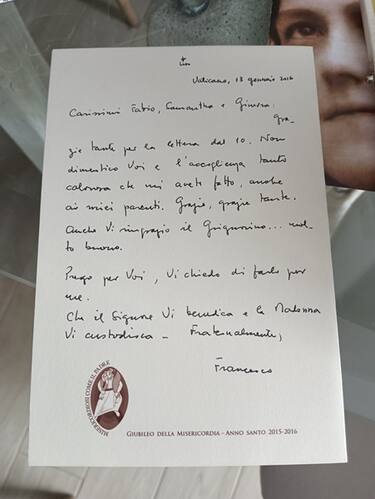 Vaticano, 13 gennaio 2016
Carissimi Fabio, Samantha e Ginevra,
Gra-
zie tante per la lettera del 10. Non
dimentico Voi e l'accoglienza tanto
calorosa che mi avete fatto, anche
ai miei parenti. Grazie, grazie tante.
Anche Vi ringrazio il Grignolino... mol-
to buono.
Prego per Voi, Vi chiedo di farlo per
me.
Che il Signore Vi benedica e la Madonna
Vi custodisca - Fraternalmente,
Francesco
MISERICORDIOSI COME IL PADRE
GIUBILEO DELLA MISERICORDIA - ANNO SANTO 2015-2016